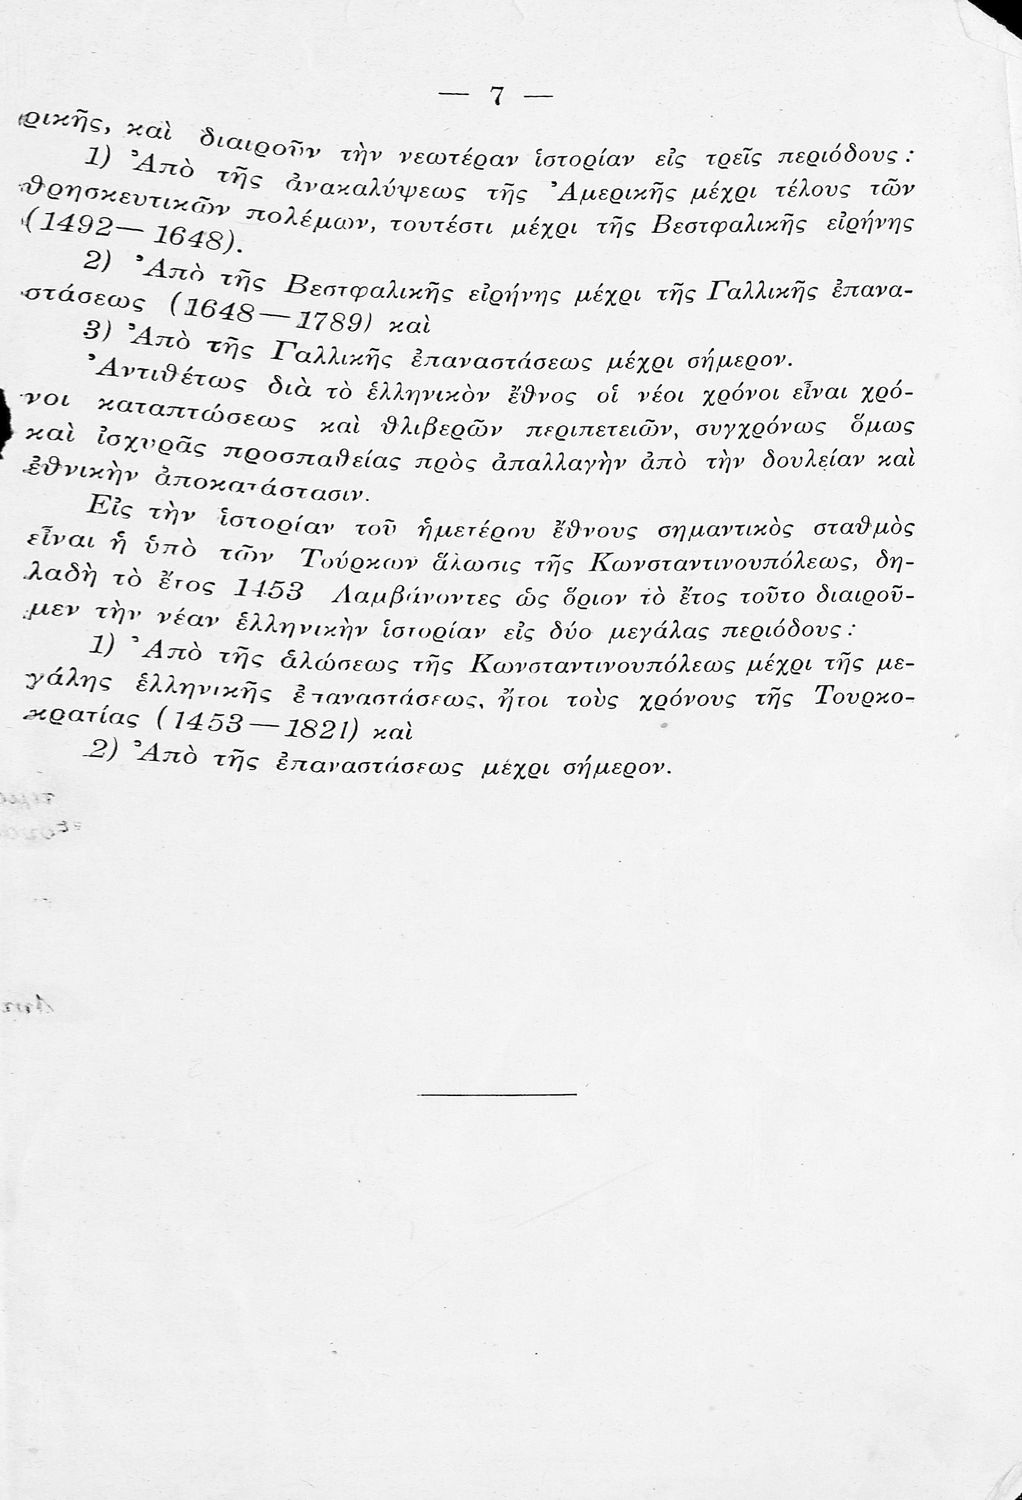 — 7 —
ρικῆς, καὶ διαιροῦν τὴν νεωτέραν ἱστορίαν εἰς τρεῖς περιόδους :
1) Ἀπὸ τῆς ἀνακαλύψεως τῆς Ἀμερικῆς μέχρι τέλους τῶν
θρησκευτικῶν πολέμων, τουτέστι μέχρι τῆς Βεστφαλικῆς εἰρήνης
(1492— 1648).
2) Ἀπὸ τῆς Βεστφαλικῆς εἰρήνης μέχρι τῆς Γαλλικῆς ἐπανα-
στάσεως (1648—1789) καὶ
3) Ἀπὸ τῆς Γαλλικῆς ἐπαναστάσεως μέχρι σήμερον.
Ἀντιθέτως διὰ τὸ ἑλληνικὸν ἔθνος οἱ νέοι χρόνοι εἶναι χρό-
νοι καταπτώσεως καὶ θλιβερῶν περιπετειῶν, συγχρόνως ὅμως
καὶ ἰσχυρᾶς προσπαθείας πρὸς ἀπαλλαγὴν ἀπὸ τὴν δουλείαν καὶ
ἐθνικὴν ἀποκατάστασιν.
Εἰς τὴν ἱστορίαν τοῦ ἡμετέρου ἔθνους σημαντικὸς σταθμὸς
εἶναι ἡ ὑπὸ τῶν Τούρκων ἅλωσις τῆς Κωνσταντινουπόλεως, δη-
λαδὴ τὸ ἔτος 1453 Λαμβάνοντες ὡς ὅριον τὸ ἔτος τοῦτο διαιροῦ-
μεν τὴν νέαν ἑλληνικὴν ἱστορίαν εἰς δύο μεγάλας περιόδους :
1) Ἀπὸ τῆς ἁλώσεως τῆς Κωνσταντινουπόλεως μέχρι τῆς με-
γάλης ἑλληνικῆς ἐπαναστάσεως, ἤτοι τοὺς χρόνους τῆς Τουρκο-
κρατίας (1453—1821) καὶ
2) Ἀπὸ τῆς ἐπαναστάσεως μέχρι σήμερον.